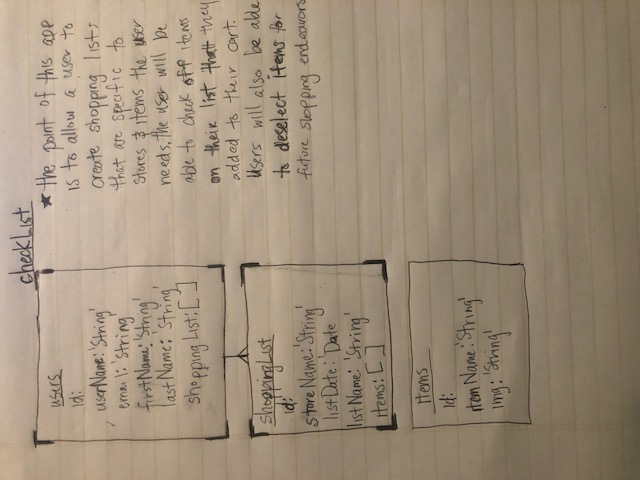 checkList
users
id:
userName: 'String'
email: 'String
firstName: 'String'
lastName: 'String'
shoppingList: [ ]
shoppingList
id:
storeName: 'String'
listDate: 'Date
listName: 'String'
items: [ ]
items
id:
itemName: 'String'
img: 'String'
★ the point of this app
is to allow a user to
create shopping lists
that are specific to
stores & items the user
needs. The user will be
able to check off items
on their list that they
added to their cart.
Users will also be able
to deselect items for
future shopping endeavors